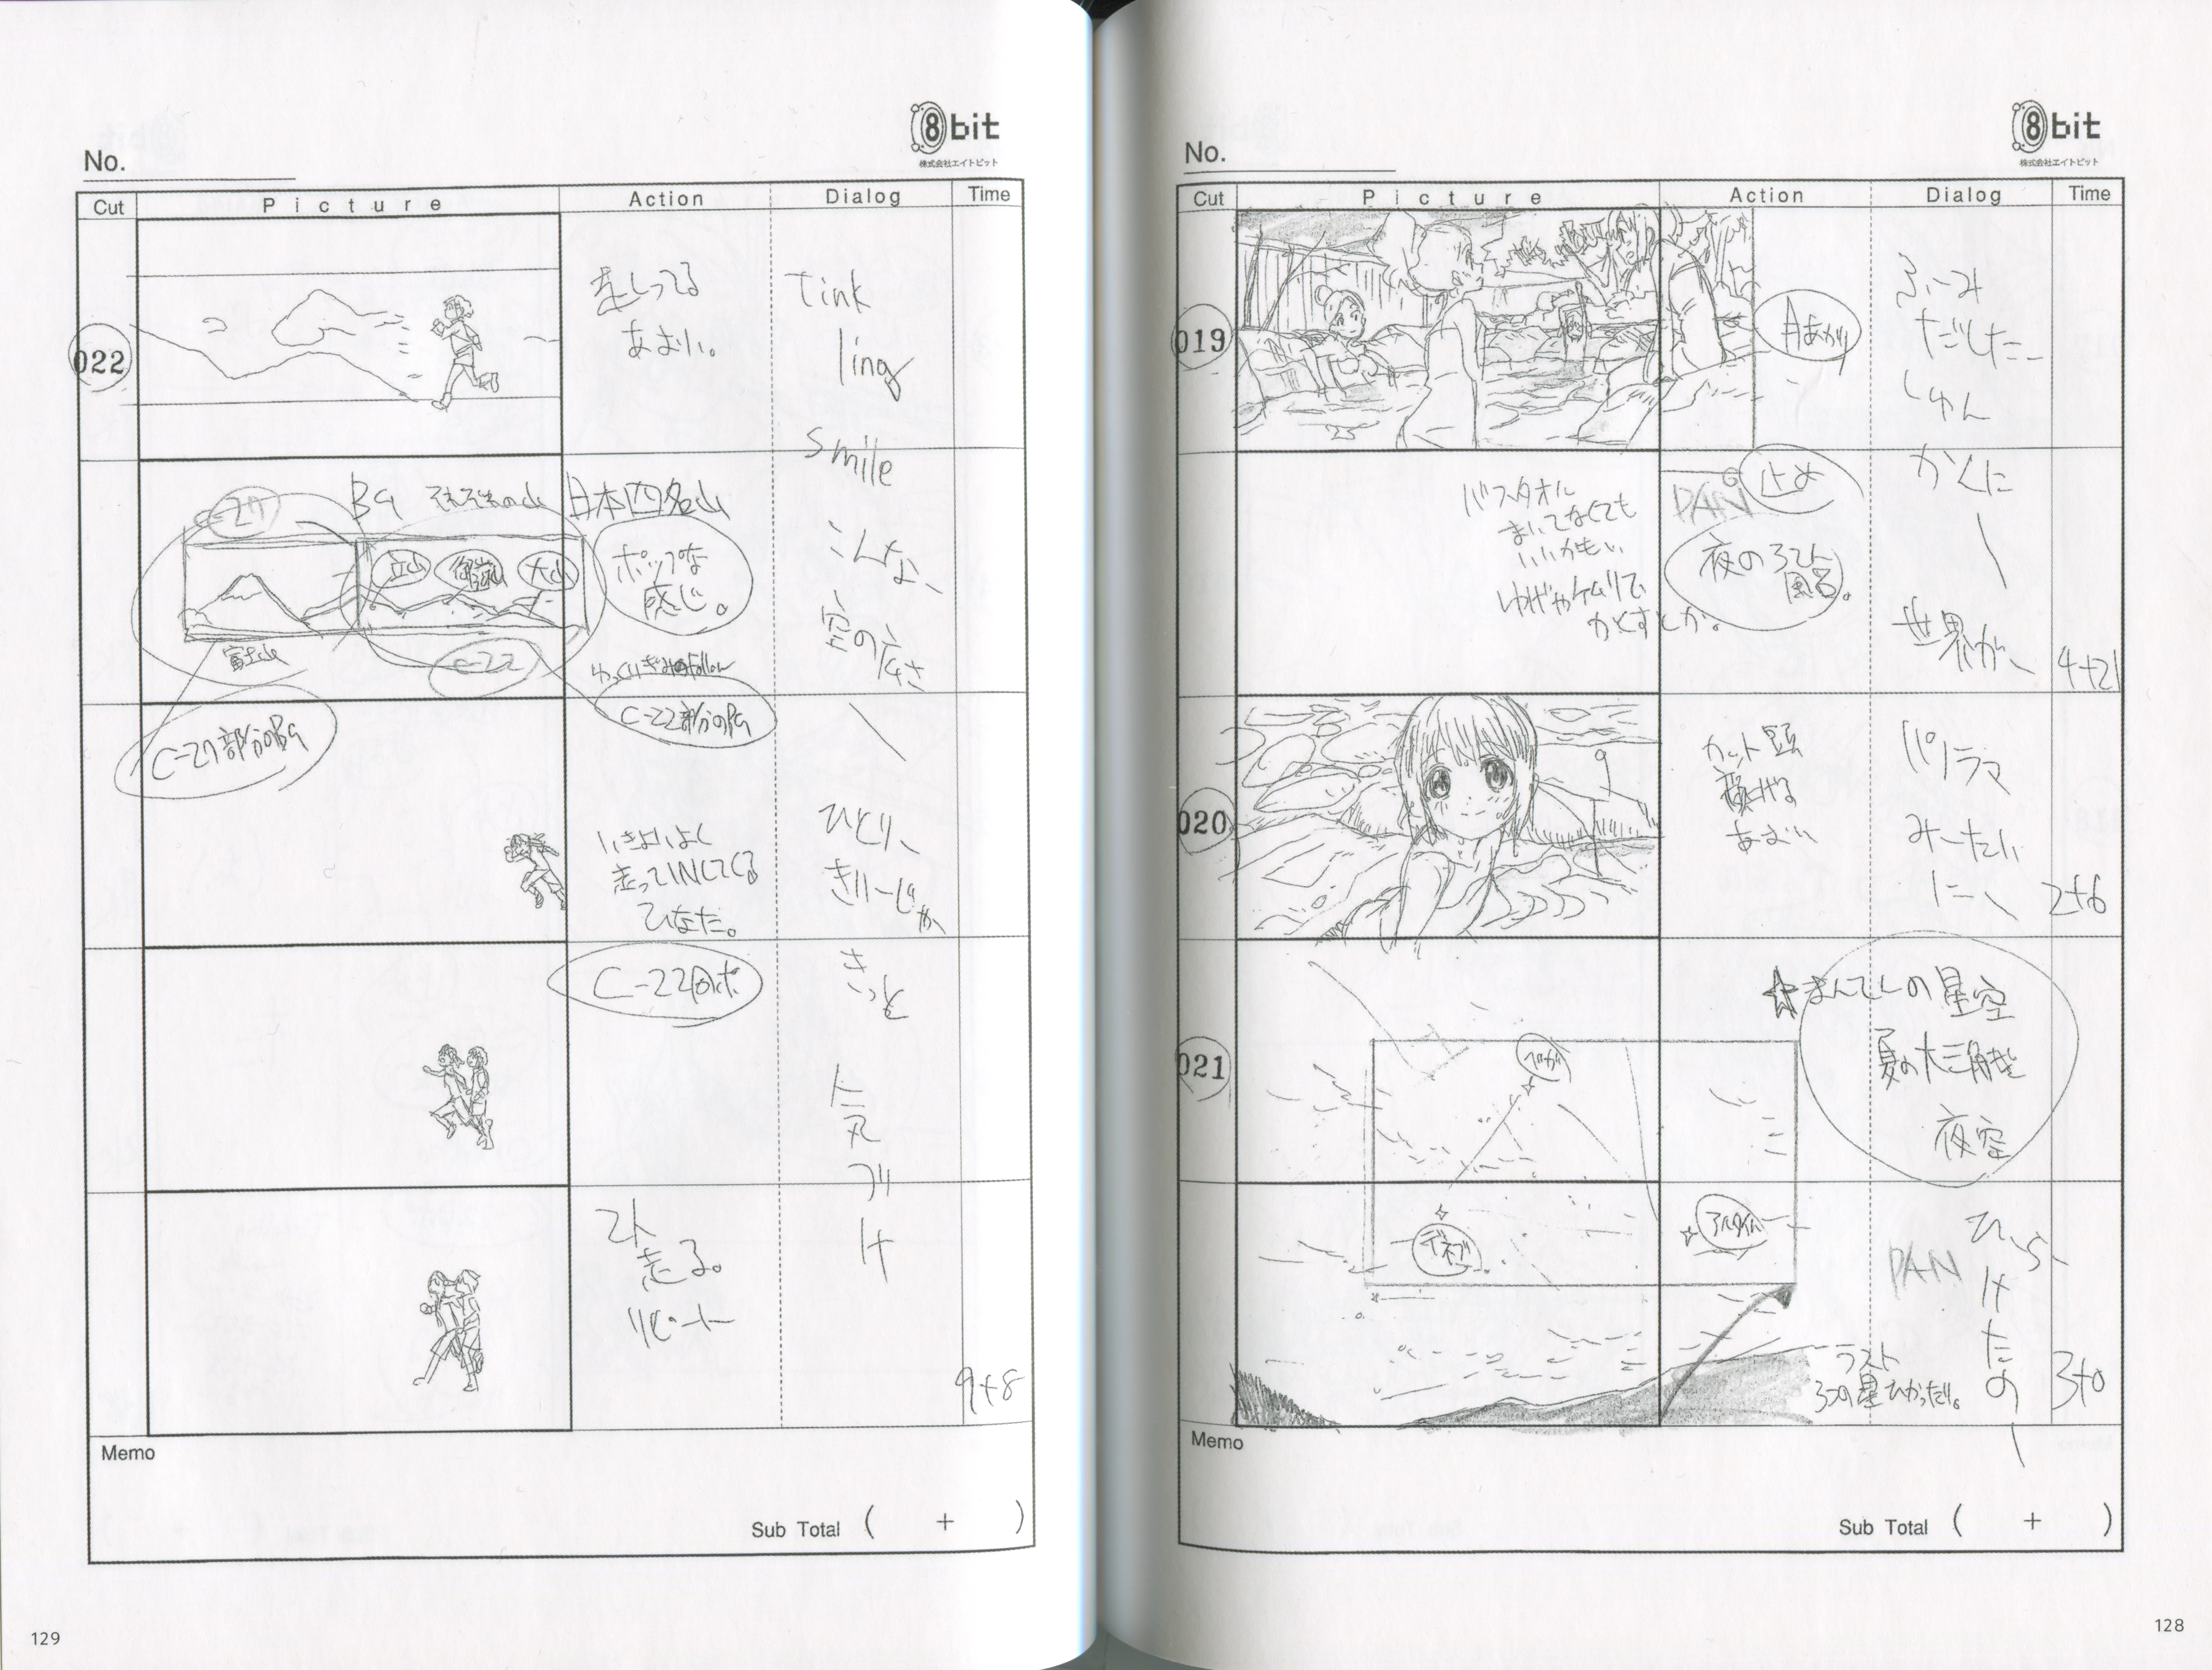 8bit
株式会社エイトビット
No.
Cut
Picture
Action
Dialog
Time
019
月あかり
ふーみ
だしたー
しゅん
かんに
バスタオル
まいてなくても
いいかも。
ゆげやケムリで
かくすとか。
PAN
止め
夜のろてん
風呂。
世界が、
4+21
020
カット頭
顔上げる
あおい
パノラマ
みーたい
に、
2+6
021
☆まんてんの星空
夏の大三角形
夜空
ベガ
デネブ
アルタイル
PAN
ラスト
3つの星ひかったり。
ひ、ら、
けたの
3+0
Memo
Sub Total ( + )
128
8bit
株式会社エイトビット
No.
Cut
Picture
Action
Dialog
Time
022
走ってる
あおい。
Tink
ling
smile
C-27
BG それぞれの山
日本四名山
立山
御嶽山
大山
富士山
C-22
ポップな
感じ。
C-22部分のBG
C-27部分のBG
こんな、
空の広さ
いきおいよく
走ってINしてくる
ひなた。
ひとり、
きりーじゃ
C-22
きっと
気づけ
2人
走る。
リピート
9+8
Memo
Sub Total ( + )
129